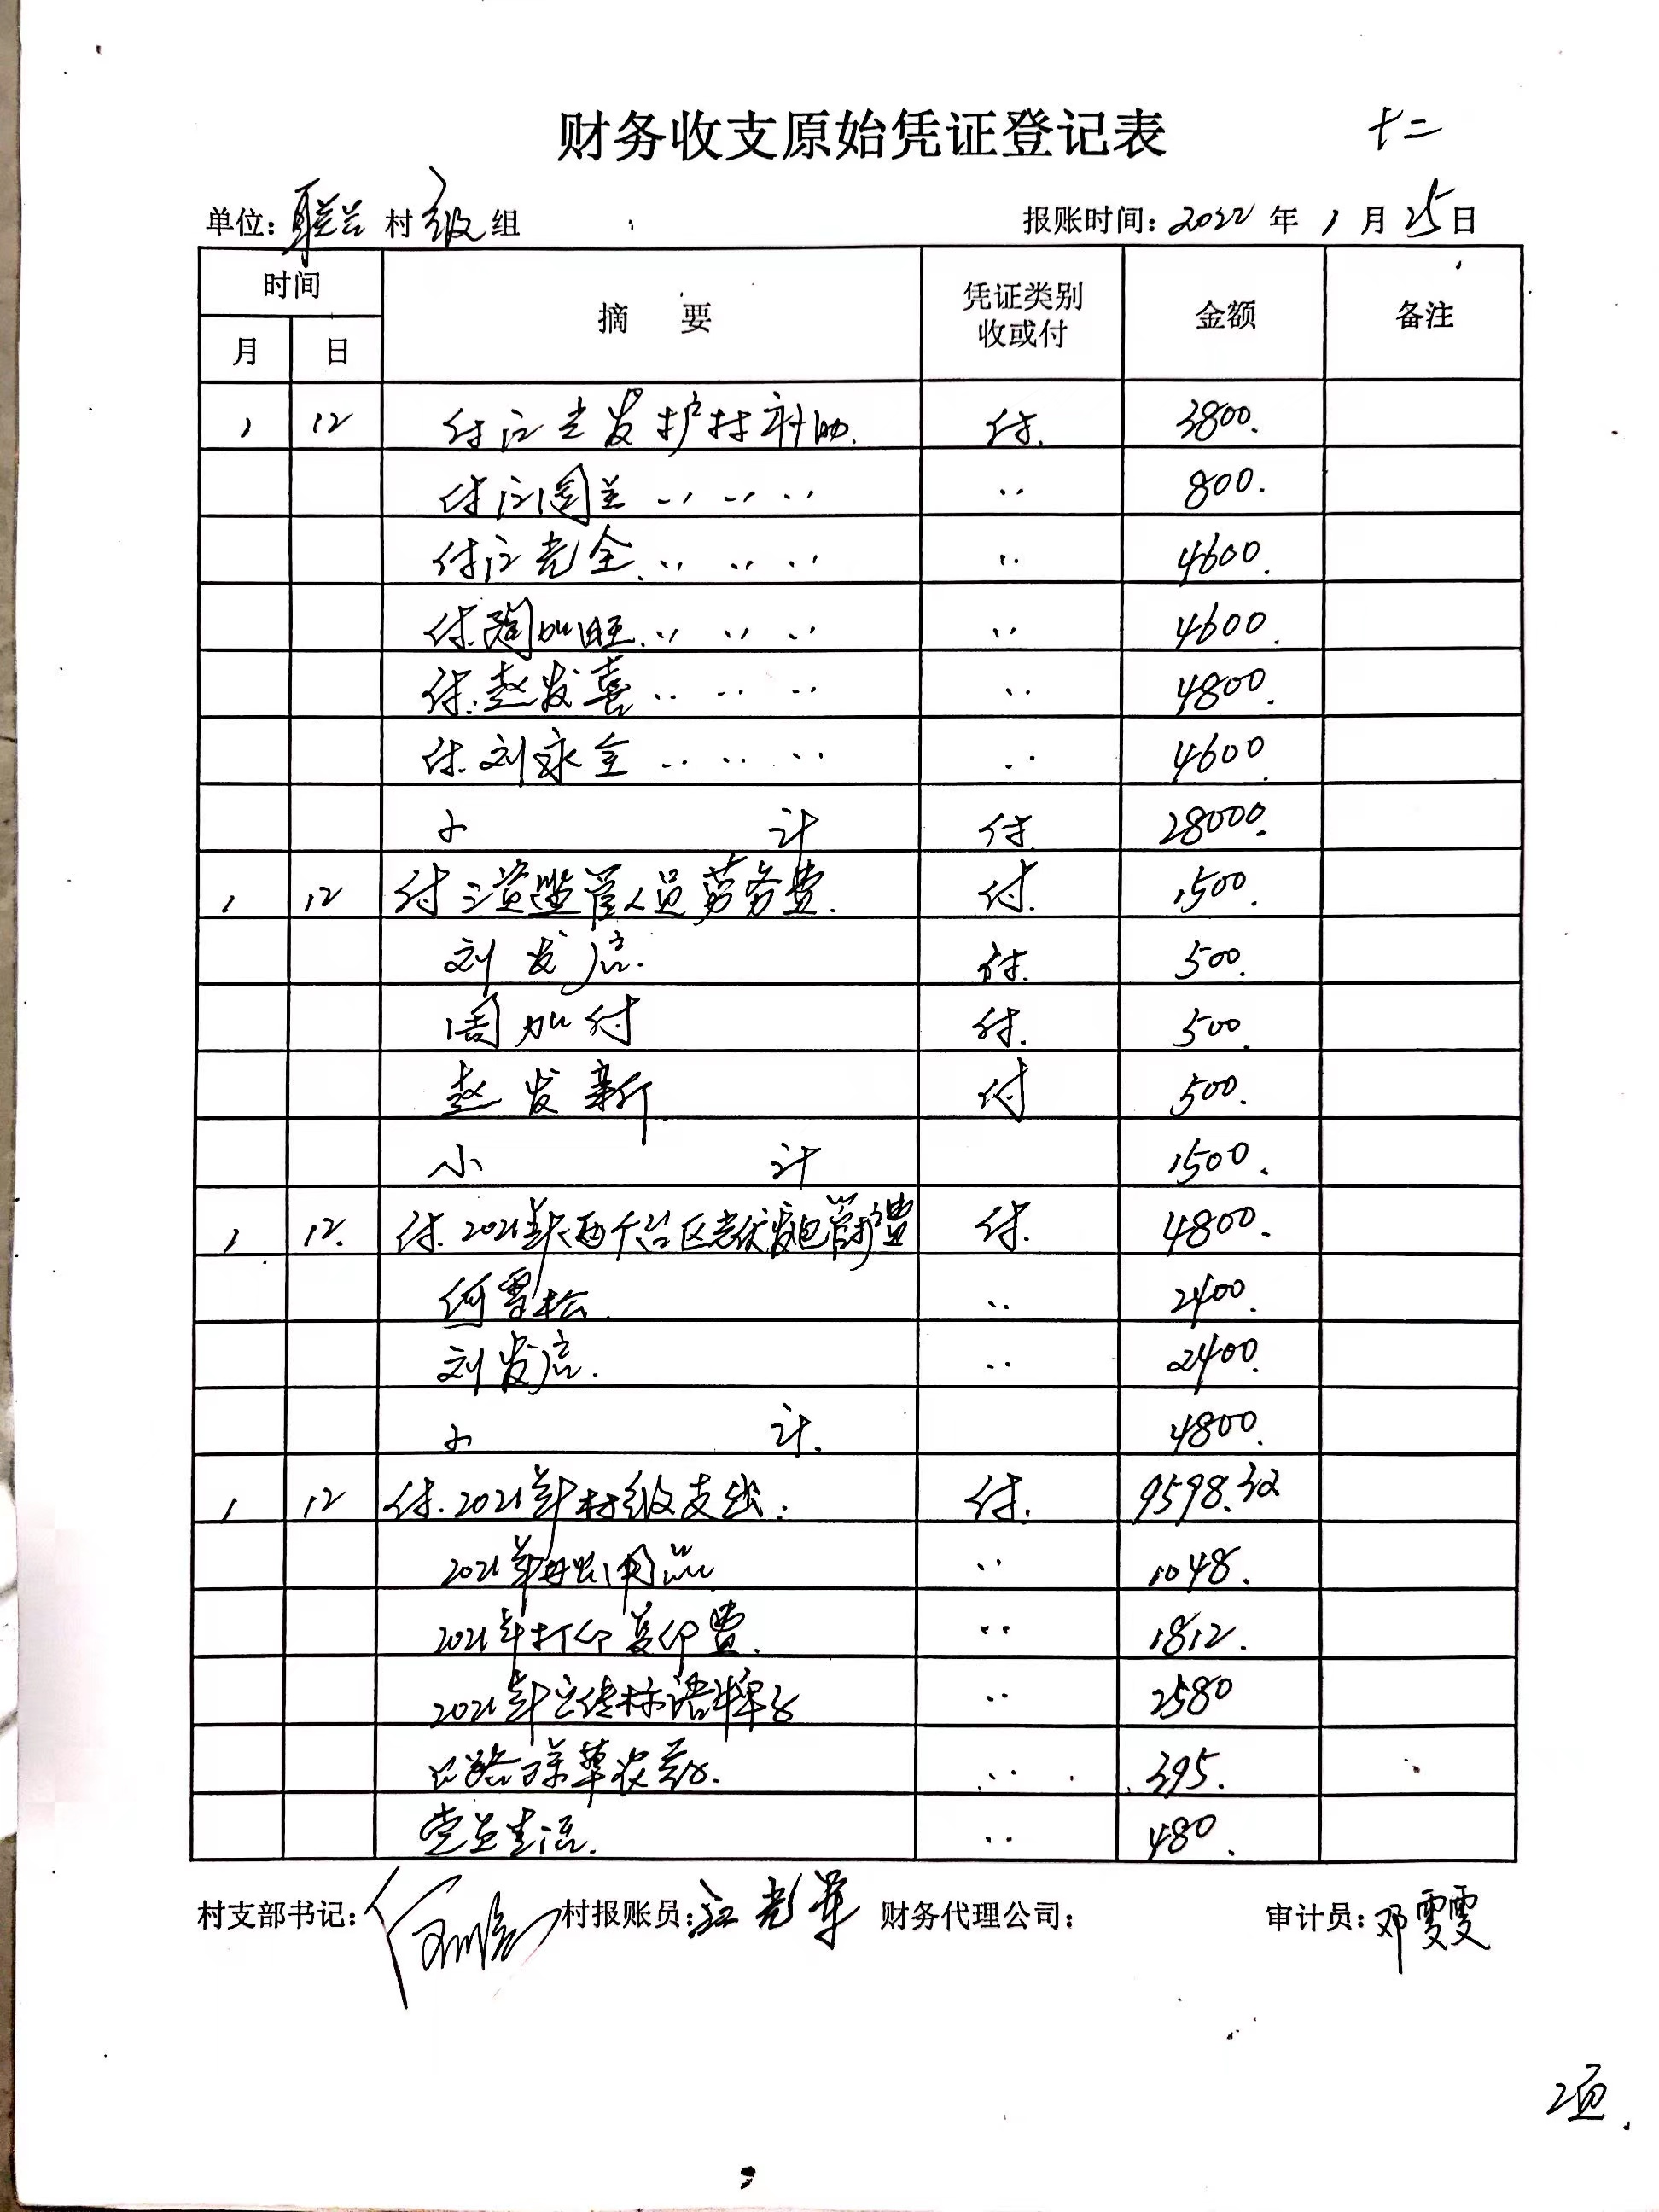 财务收支原始凭证登记表 十二
单位：联合村级组 报账时间：2022年1月25日
时间 摘要 凭证类别收或付 金额 备注
月 日
1 12 付江光发护村补助. 付. 3800.
付江国兰 〃 〃 〃 〃 800.
付江光全. 〃 〃 〃 〃 4600.
付.陶加旺. 〃 〃 〃 〃 4600.
付.赵发喜 〃 〃 〃 〃 4800.
付.刘永全 〃 〃 〃 〃 4600.
小计 付. 28000.
1 12 付三资监管人员劳务费. 付. 1500.
刘发启. 付. 500.
周加付 付. 500.
赵发新 付 500.
小计 1500.
1 12. 付.2021年两个台区光伏发电管护费 付. 4800.
何雪松. 〃 2400.
刘发启. 〃 2400.
小计. 4800.
1 12 付.2021年村级支出. 付. 9598.32
2021年 用品 〃 1048.
2021年打印复印费. 〃 1812.
2021年宣传标语牌子 〃 2580
公路除草农药. 〃 395.
党员生活. 〃 480.
村支部书记： 村报账员：江光军 财务代理公司： 审计员：邓雯雯
2页.